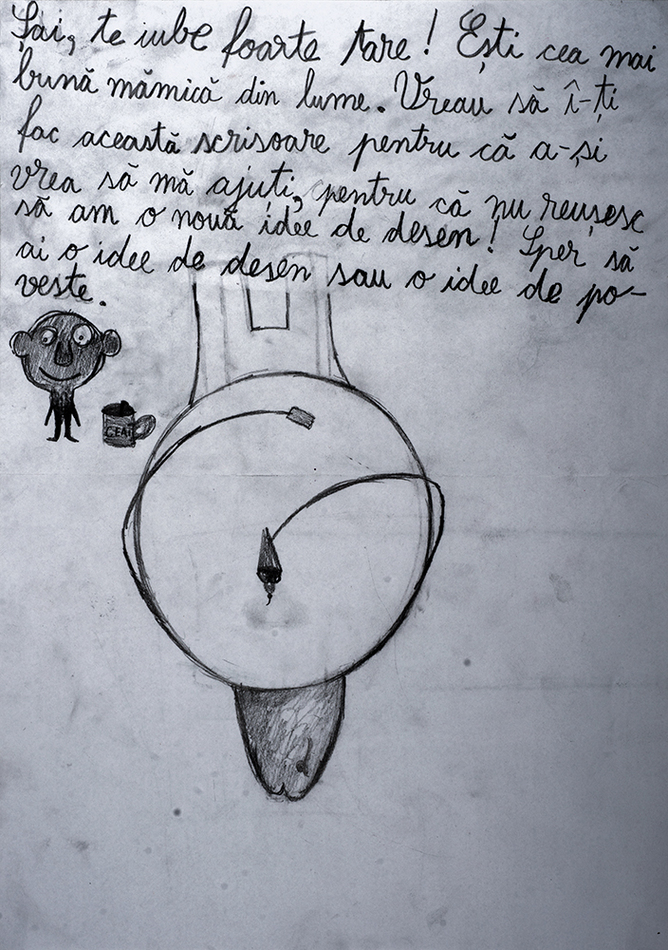 Iai, te iube foarte tare! Ești cea mai
bună mămică din lume. Vreau să î-ți
fac această scrisoare pentru că a-și
vrea să mă ajuți, pentru că nu reușesc
să am o nouă idee de desen! Sper să
ai o idee de desen sau o idee de po-
veste.
CEAI